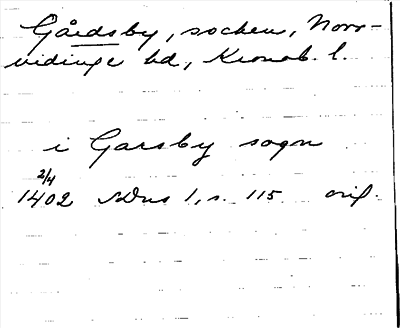 Gårdsby, socken, Norr-
vidinge hd, Kronob. l.
i Garsby sogn
2/4
1402 SDns 1, s. 115 orig.